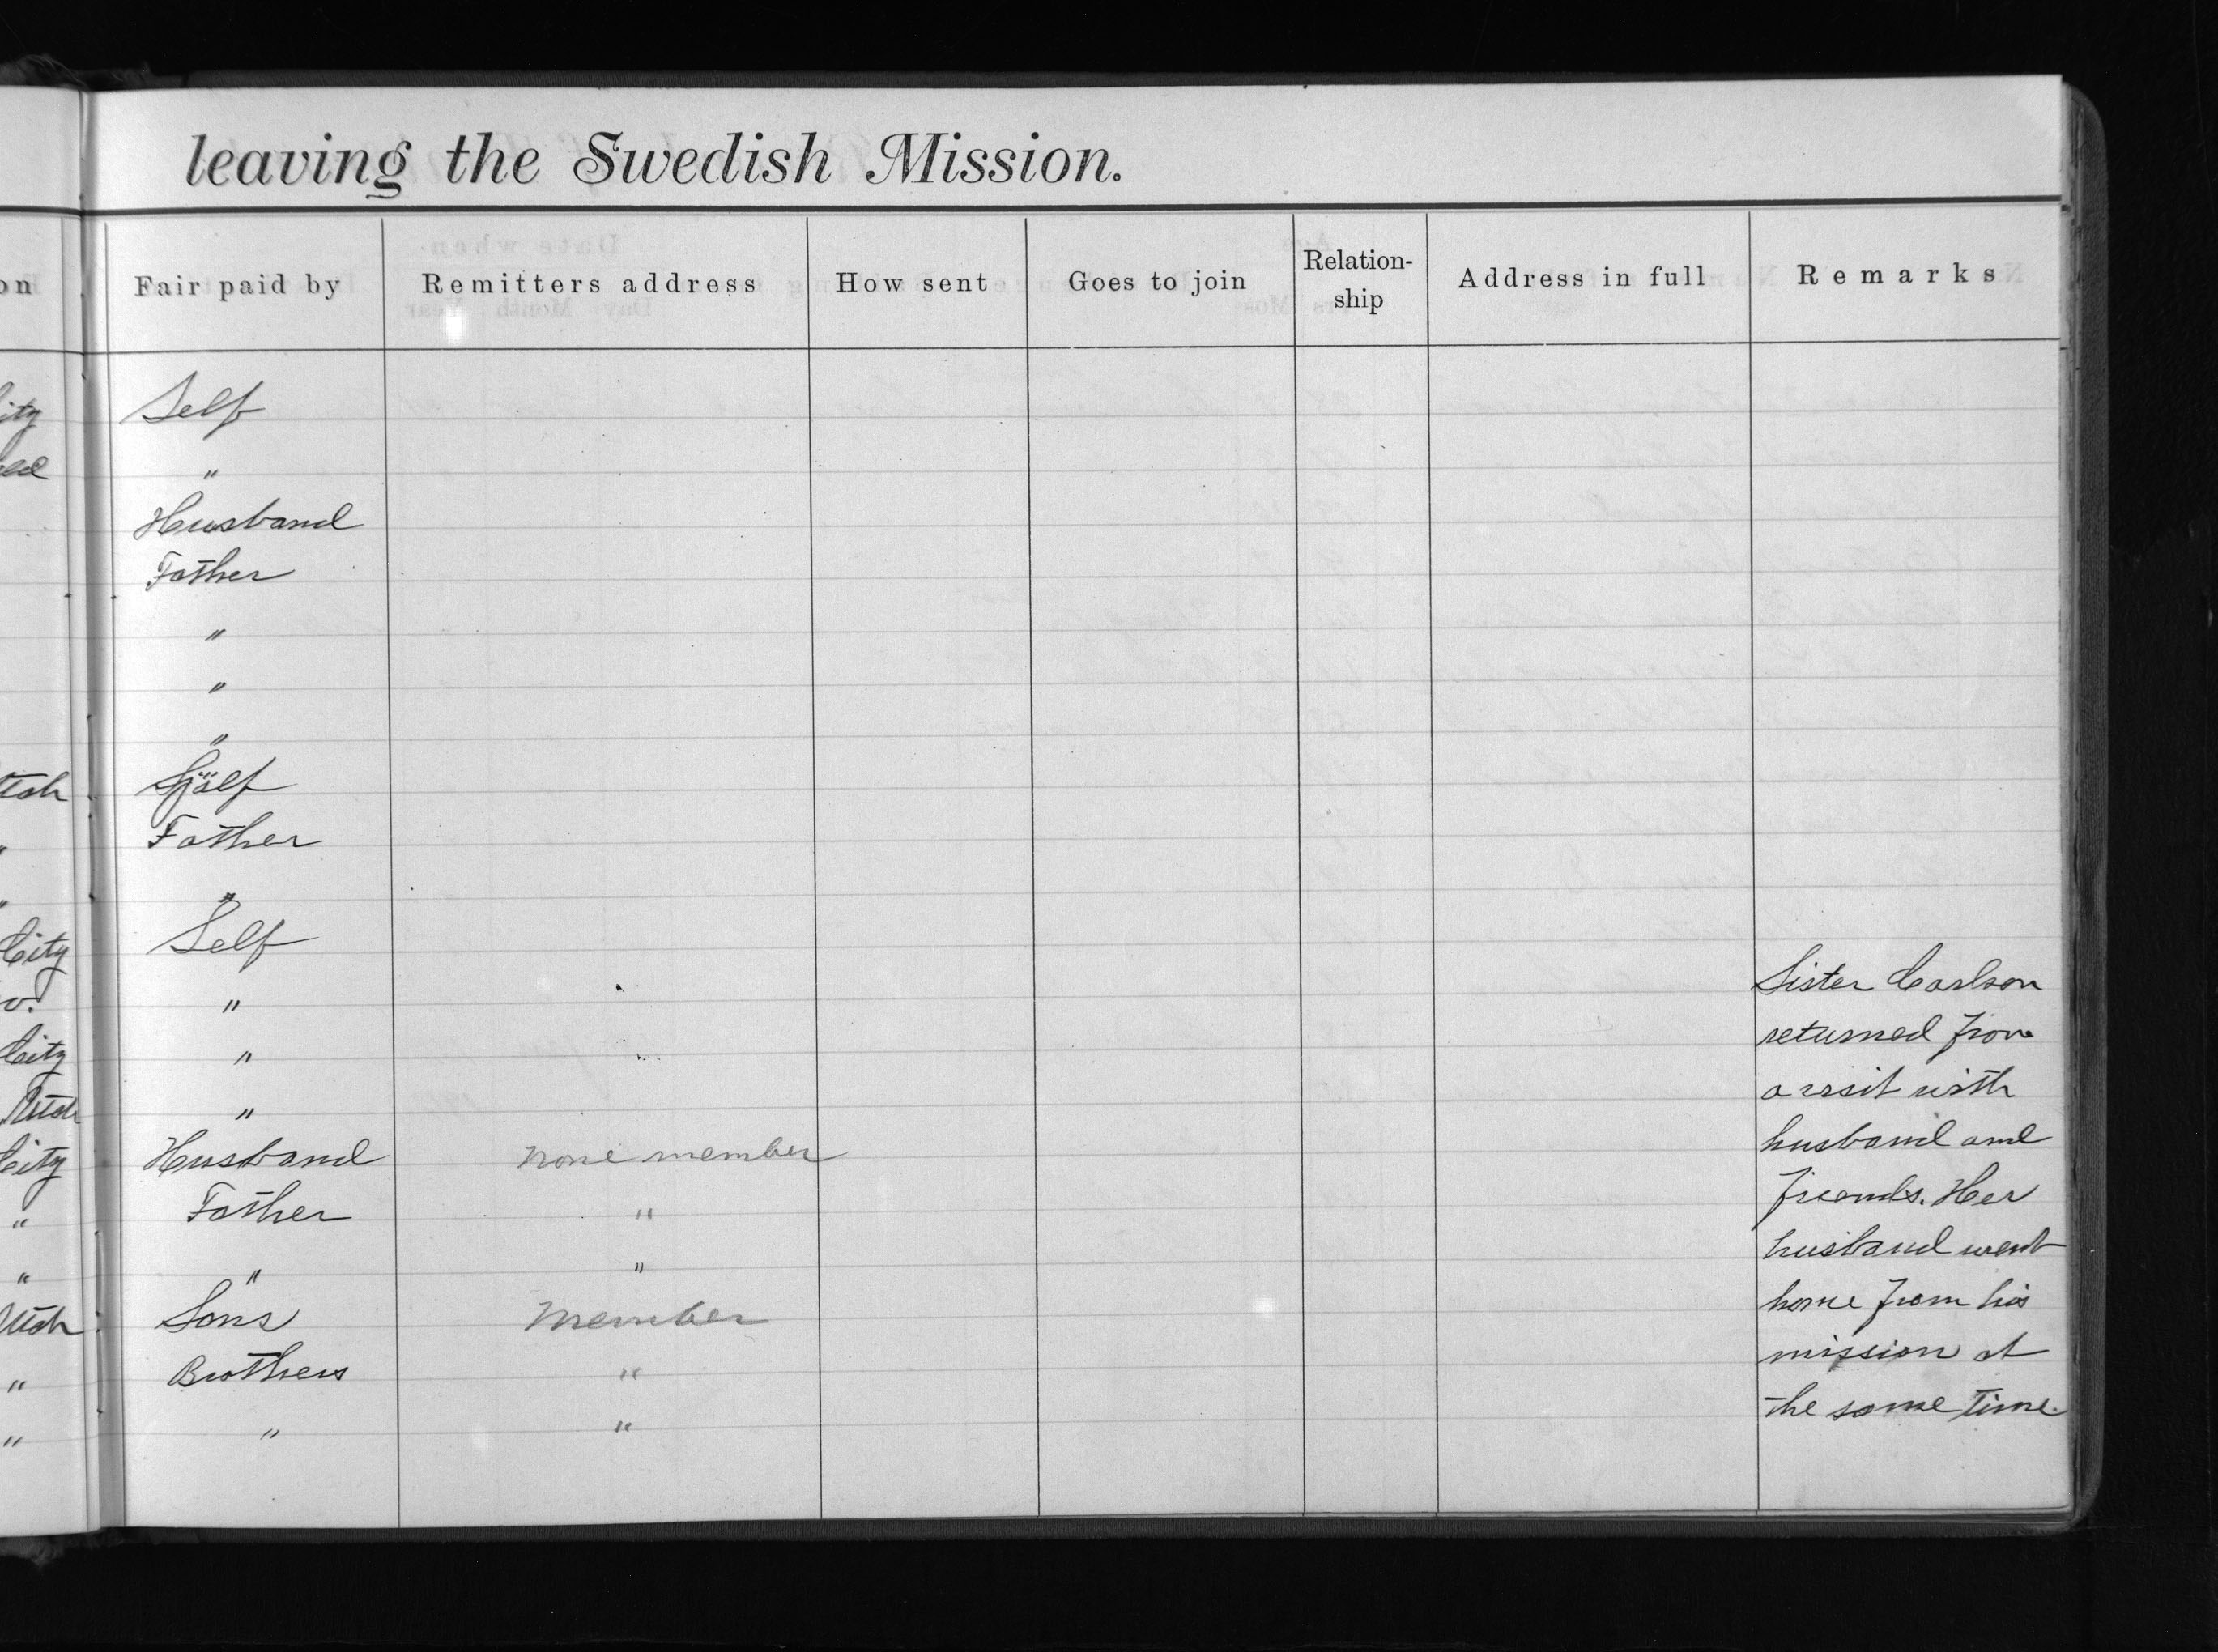 leaving the Swedish Mission.
on Fair paid by Remitters address How sent Goes to join Relation-ship Address in full Remarks
ity Self
"
Husband
Father
"
"
"
tah Själf
" Father
" "
City Self
Sister Carlson
o. "
returned from
City "
a visit with
Utah "
husband and
City Husband none member
friends. Her
" Father "
husband went
" " "
home from his
Utah Sons Member
mission at
" Brothers "
the same time.
" " "